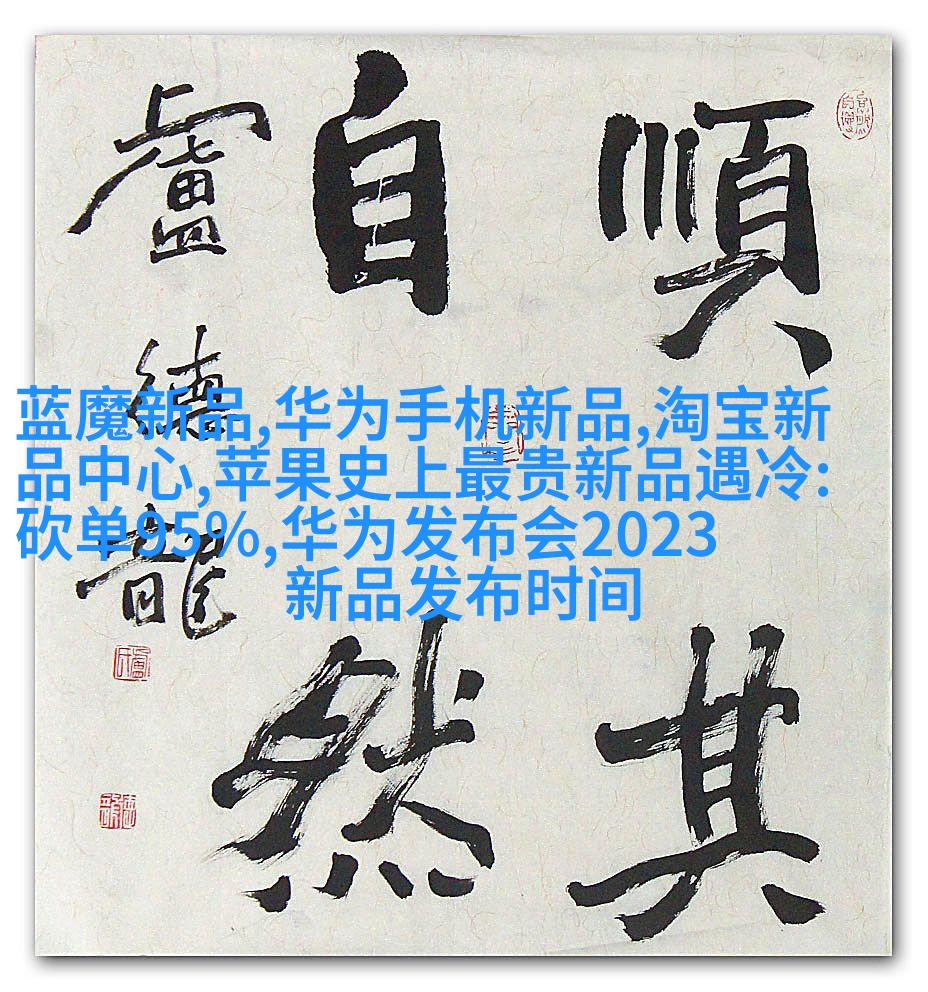 順其
自然
盧德龍
蓝魔新品,华为手机新品,淘宝新
品中心,苹果史上最贵新品遇冷:
砍单95%,华为发布会2023
新品发布时间